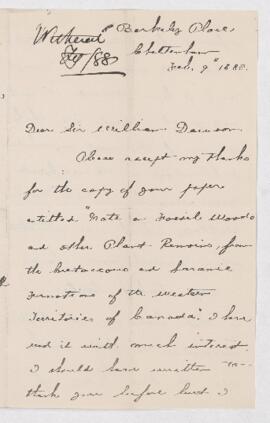 Witherel
/88
Berkeley Place,
Cheltenham
Feb. 9th 1888.
Dear Sir William Dawson
Please accept my thanks
for the copy of your paper
entitled "Note on Fossil Woods
and other Plant Remains, from
the Cretaceous and Laramie
Formations of the Western
Territories of Canada". I have
read it with much interest.
I should have written to
thank you before but I